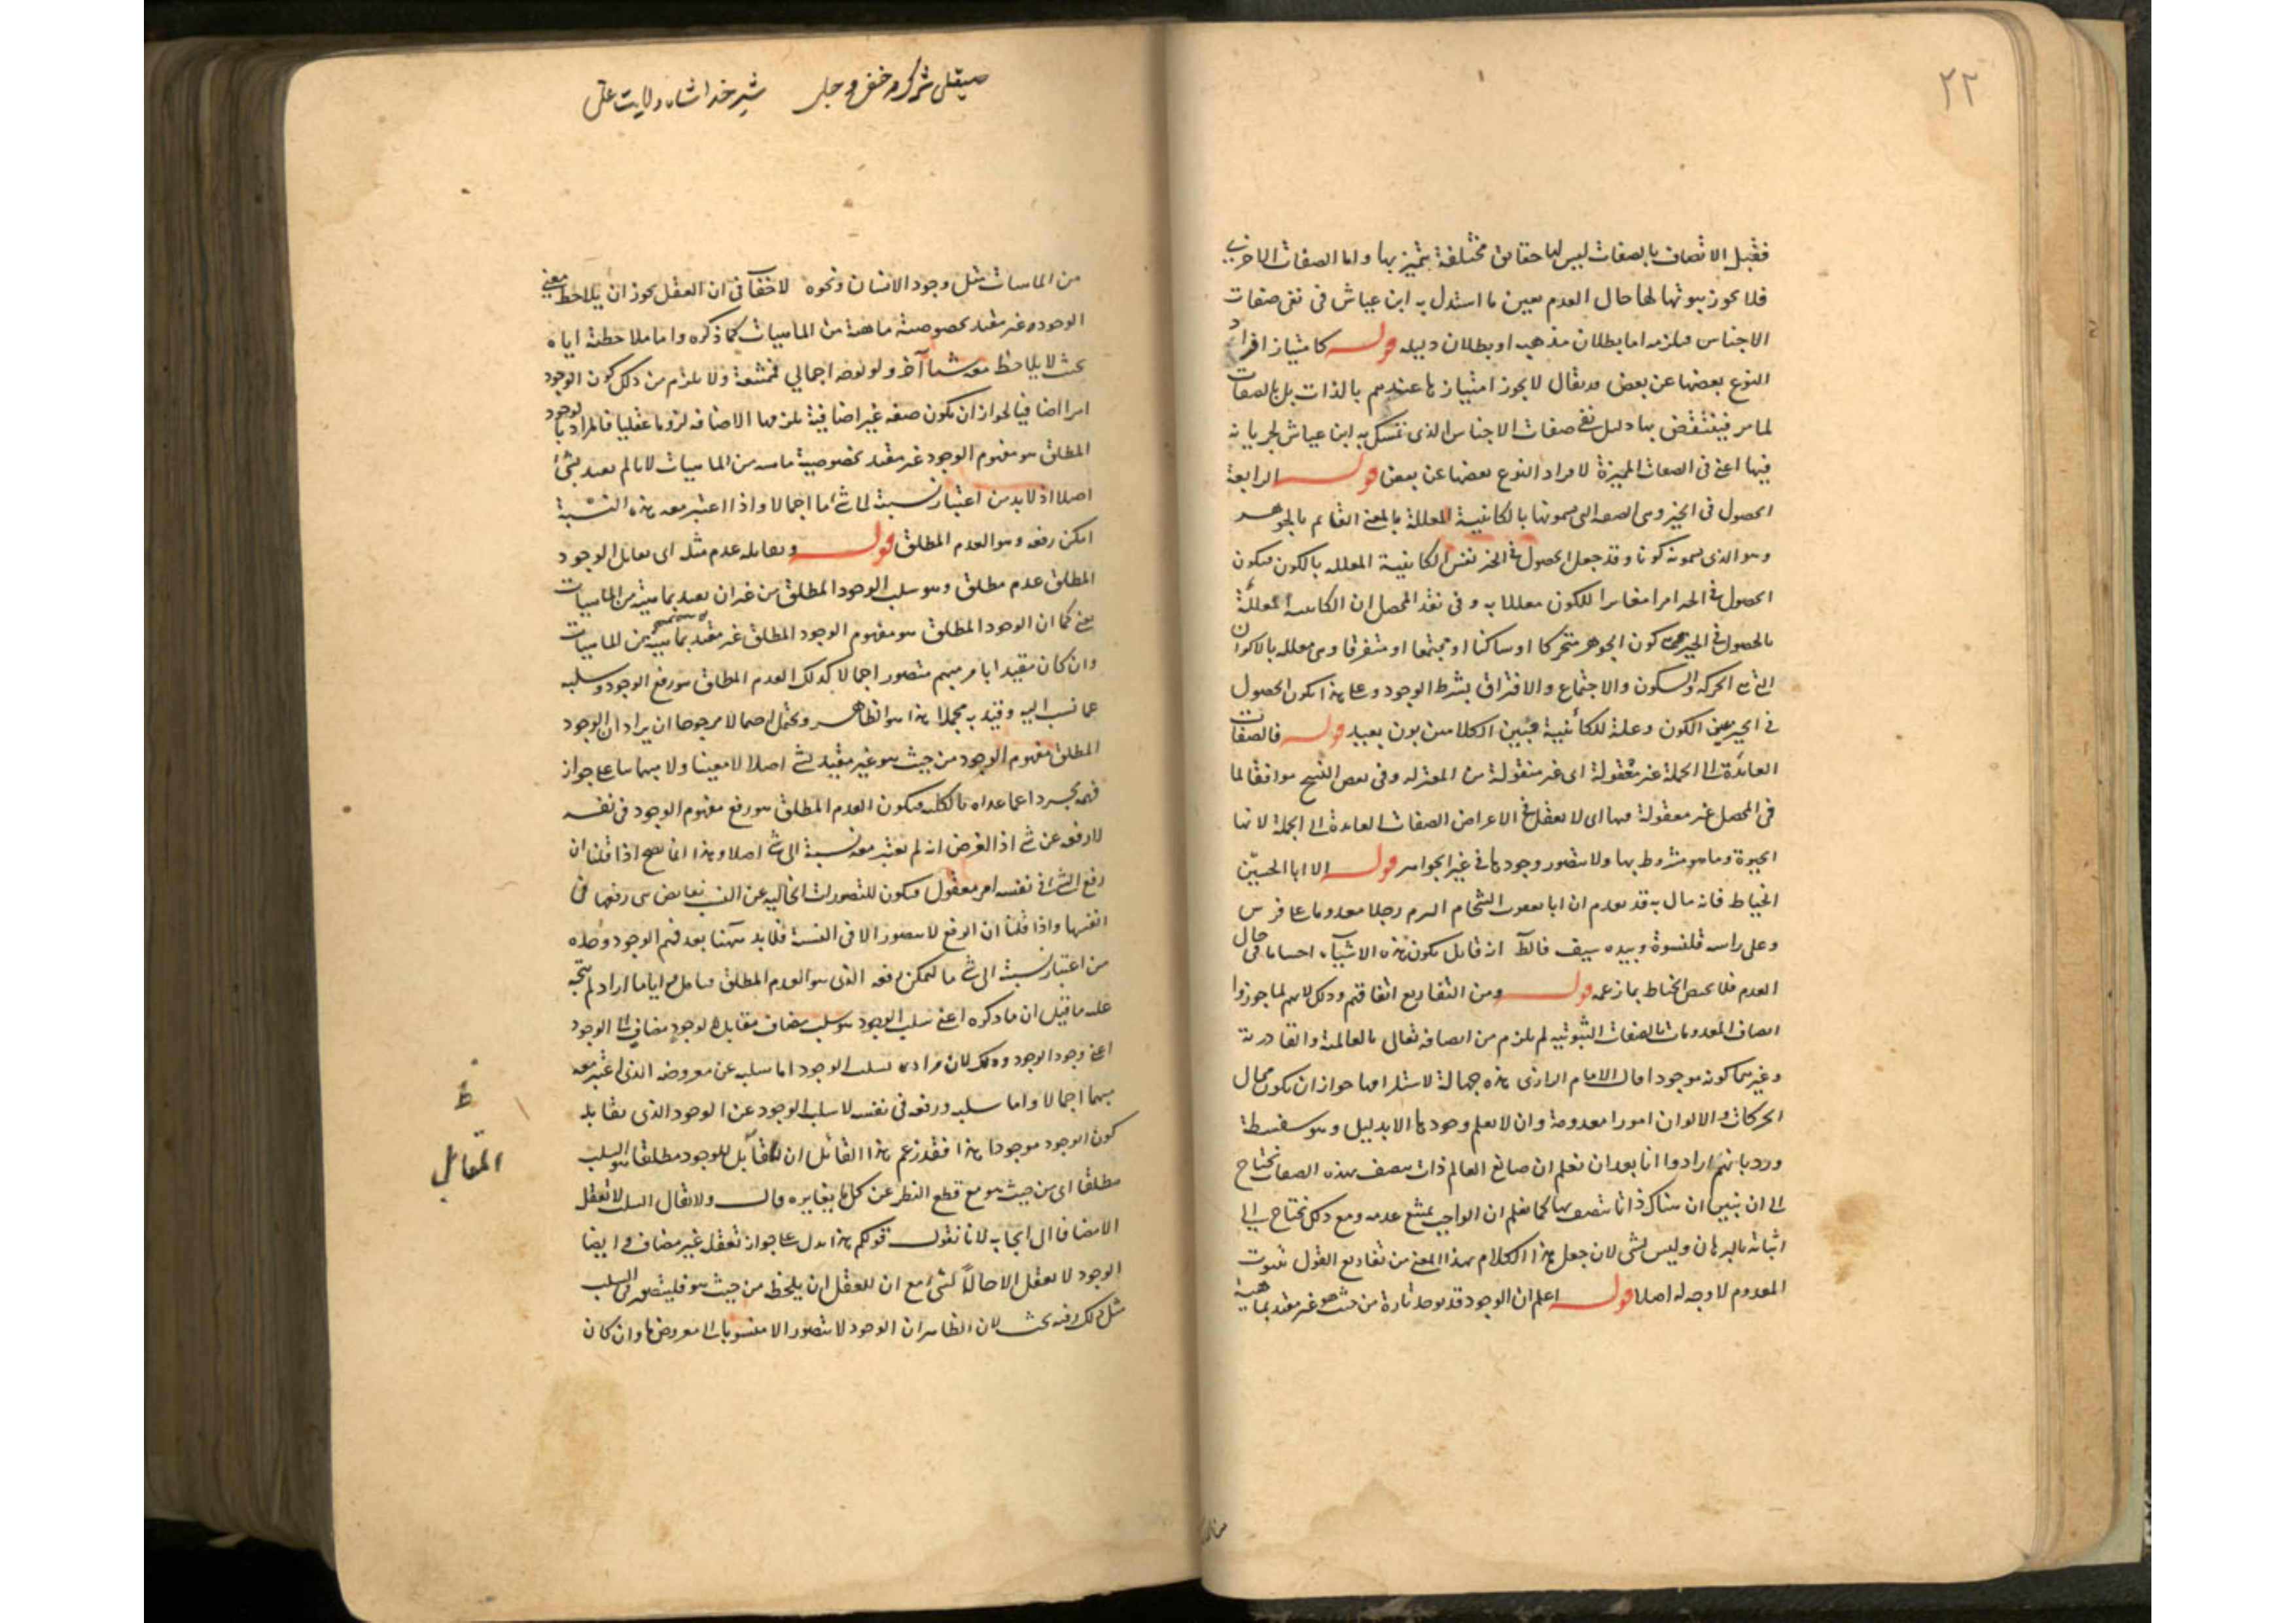 ٢٢
فقبل الاتصاف بالصفات ليس لها حقائق مختلفة يتميز بها واما الصفات الاخرى
فلا يجوز ثبوتها لها حال العدم بعين ما استدل به ابن عياش فى نفى صفات
الاجناس فيلزمه اما بطلان مذهبه او بطلان دليله قوله كامتياز افراد
النوع بعضها عن بعض قد يقال لا يجوز امتيازها عندهم بالذات بل بالصفات
لما مر فينتقض بها دليل نفى صفات الاجناس الذى تمسك به ابن عياش لجريانه
فيها اعنى فى الصفات المميزة لافراد النوع بعضها عن بعض قوله الرابعة
الحصول فى الحيز وهى الصفة التى يسمونها بالكائنية المعللة بالمعنى القائم بالجوهر
وهو الذى يسمونه كونا وقد جعل الحصول فى الحيز نفس الكائنية المعللة بالكون فيكون
الحصول فى الحيز امرا مغايرا للكون معللا به وفى نقد المحصل ان الكائنية المعللة
بالحصول فى الحيز هى كون الجوهر متحركا او ساكنا او مجتمعا او متفرقا وهى معللة بالاكوان
التى هى الحركة والسكون والاجتماع والافتراق بشرط الوجود وعلى هذا يكون الحصول
فى الحيز عين الكون وعلة للكائنية فبين الكلامين بون بعيد قوله فالصفات
العائدة الى الجملة غير معقولة اى غير منقولة من المعتزله وفى بعض النسخ موافقا لما
فى المحصل غير معقولة فيها اى لا يعقل فى الاعراض الصفات العائدة الى الجملة لانها
الحيوة وما هو مشروط بها ولا يتصور وجودها فى غير الجواهر قوله الا ابا الحسين
الخياط فانه قال به قد تقدم ان ابا يعقوب الشحام الزم رجلا معدوما على فرس
وعلى راسه قلنسوة وبيده سيف قال انه قابل بكون هذه الاشياء احساما فى حال
العدم فلا يختص الخياط بما زعمه قوله ومن التفاريع اتفاقهم وذلك لانهم لما جوزوا
اتصاف المعدومات بالصفات الثبوتيه لم يلزم من اتصافه تعالى بالعالمية والقادرية
وغيرهما كونه موجودا قال الامام الرازى هذه جهالة لاستلزامها جواز ان يكون محال
الحركات والالوان امورا معدومة وان لا يعلم وجودها الا بدليل وهو سفسطة
ورد بانهم ارادوا انا بعد ان نعلم ان صانع العالم ذات يتصف بهذه الصفات نحتاج
الى ان نبين ان هناك ذاتا يتصف بها كما نعلم ان الواجب يمتنع عدمه ومع ذلك نحتاج الى
اثباته بالبرهان وليس بشى لان جعل هذا الكلام بهذا المعنى من تفاريع القول بثبوت
المعدوم لا وجه له اصلا قوله اعلم ان الوجود قد يوخذ تارة من حيث هو غير مقيد بماهية
شير خدا شاه ولايت على صيقلى شرك خفى و جلى
من الماهيات مثل وجود الانسان ونحوه لا خفاء فى ان العقل يجوز ان يلاحظ معنى
الوجود غير مقيد بخصوصية ماهية من الماهيات كما ذكره واما ملاحظته اياه
بحيث لا يلاحظ معه شيئا آخر ولو بوجه اجمالي فممتنعة ولا يلزم من ذلك كون الوجود
امرا اضافيا لجواز ان يكون صفة غير اضافية يلزمها الاضافه لزوما عقليا فالمراد بالوجود
المطلق هو مفهوم الوجود غير مقيد بخصوصية ماهية من الماهيات لا ما لم يقيد بشئ
اصلا اذ لا بد من اعتبار نسبة الى شئ ما اجمالا واذا اعتبر معه هذه النسبة
امكن رفعه وهو العدم المطلق قوله ويقابله عدم مثله اى يقابل الوجود
المطلق عدم مطلق وهو سلب الوجود المطلق من غير ان يقيد بماهية من الماهيات
يعنى كما ان الوجود المطلق هو مفهوم الوجود المطلق غير مقيد بماهية من الماهيات
وان كان مقيدا بامر مبهم متصور اجمالا كذلك العدم المطلق هو رفع الوجود وسلبه
عما نسب اليه وقيد به مجملا هذا هو الظاهر ويحتمل احتمالا مرجوحا ان يراد ان الوجود
المطلق مفهوم الوجود من حيث هو غير مقيد بشئ اصلا لا معينا ولا مبهما بناء على جواز
فهمه مجردا عما عداه بالكلية فيكون العدم المطلق هو رفع مفهوم الوجود فى نفسه
لا رفعه عن شئ اذ الفرض انه لم يعتبر معه نسبة الى شئ اصلا وهذا انما يصح اذا قلنا ان
رفع الشئ فى نفسه امر معقول فيكون للتصورات الخالية عن النسب نقائض هى رفعها فى
انفسها واذا قلنا ان الرفع لا يتصور الا فى النسبة فلا بد ههنا بعد فهم الوجود وحده
من اعتبار نسبة الى شئ ما ليمكن رفعه الذى هو العدم المطلق فتامل واياما اراد لم يتجه
عليه ما قيل ان ما ذكره اعنى سلب الوجود هو سلب مضاف مقابل لوجود مضاف الى الوجود
اعنى وجود الوجود وذلك لان مراده بسلب الوجود اما سلبه عن معروضه الذى اعتبر معه
مبهما اجمالا واما سلبه ورفعه فى نفسه لا سلب الوجود عن الوجود الذى يقابله
كون الوجود موجودا هذا فقد زعم هذا القائل ان المقابل للوجود مطلقا هو السلب
مطلقا اى من حيث هو مع قطع النظر عن كل ما يغايره قال ولا يقال السلب لا يعقل
الا مضافا الى ايجاب لانا نقول قولكم هذا يدل على جواز تعقله غير مضاف وايضا
الوجود لا يعقل الا حالا لشئ مع ان للعقل ان يلحظه من حيث هو فليتصور فى السلب
مثل ذلك وفيه بحث لان الظاهر ان الوجود لا يتصور الا منسوبا الى معروض ما وان كان
ظ
المقابل